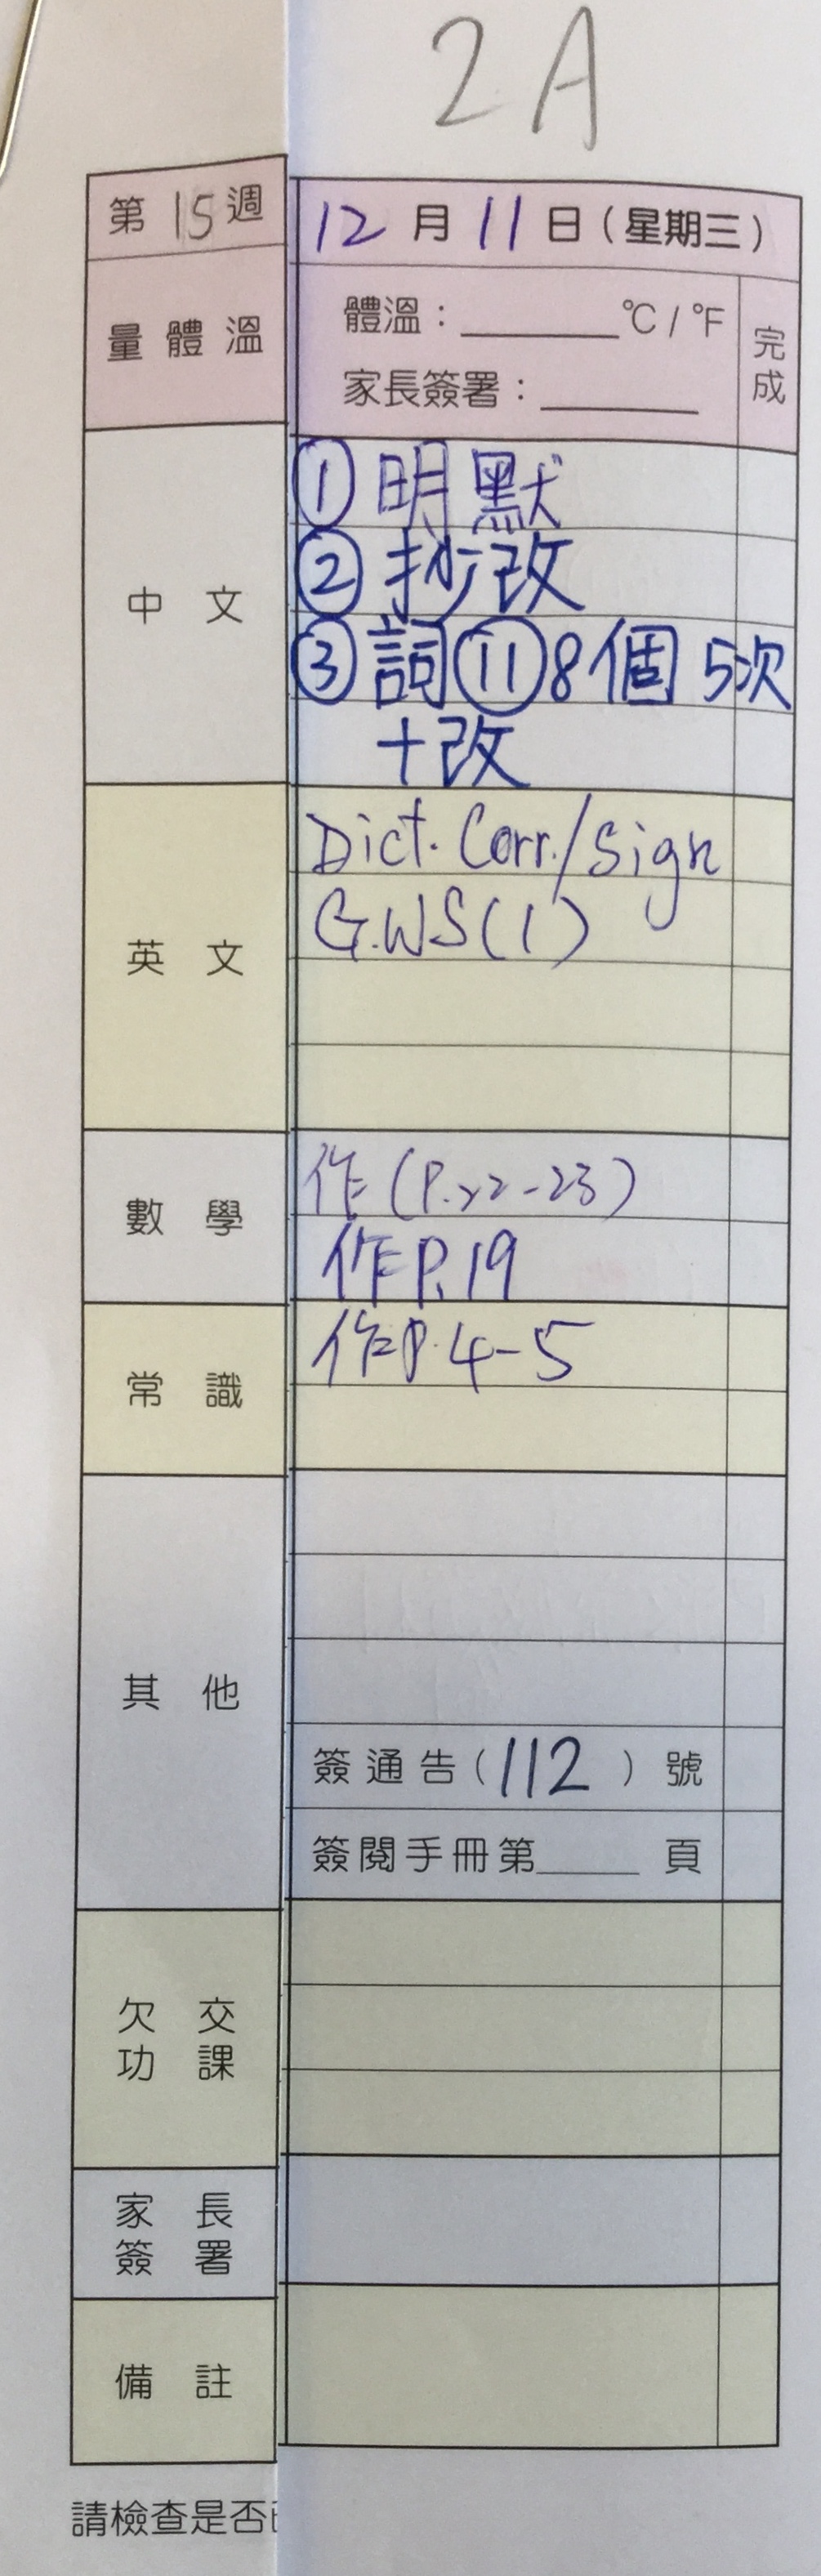 2A
第15週 12月11日(星期三)
量體溫 體溫：______°C / °F 完成
家長簽署：______
中文 ①明默
②抄改
③詞⑪8個 5次
+改
英文 Dict. Corr./sign
G.WS(1)
數學 作(P.22-23)
作P.19
常識 作P.4-5
其他
簽通告(112)號
簽閱手冊第______頁
欠交功課
家長簽署
備註
請檢查是否